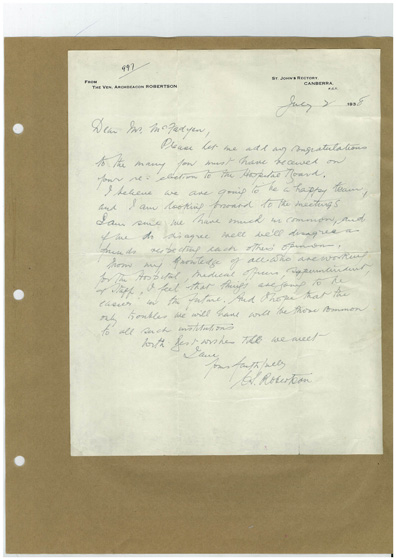 991
FROM
THE VEN. ARCHDEACON ROBERTSON
ST JOHN'S RECTORY
CANBERRA.
A.C.T.
July 2 1938
Dear Mr. McFadyen,
Please let me add my congratulations
to the many you must have received on
your re-election to the Hospital Board.
I believe we are going to be a happy team,
and I am looking forward to the meetings
I am sure we have much in common, and
if we do disagree well we'll disagree as
friends respecting each others opinion.
From my knowledge of all who are working
for the Hospital, Medical officers, Superintendent,
& Staff, I feel that things are going to be
easier in the future. And I hope that the
only troubles we will have will be those common
to all such institutions
With best wishes till we meet
I am,
Yours faithfully
Robertson